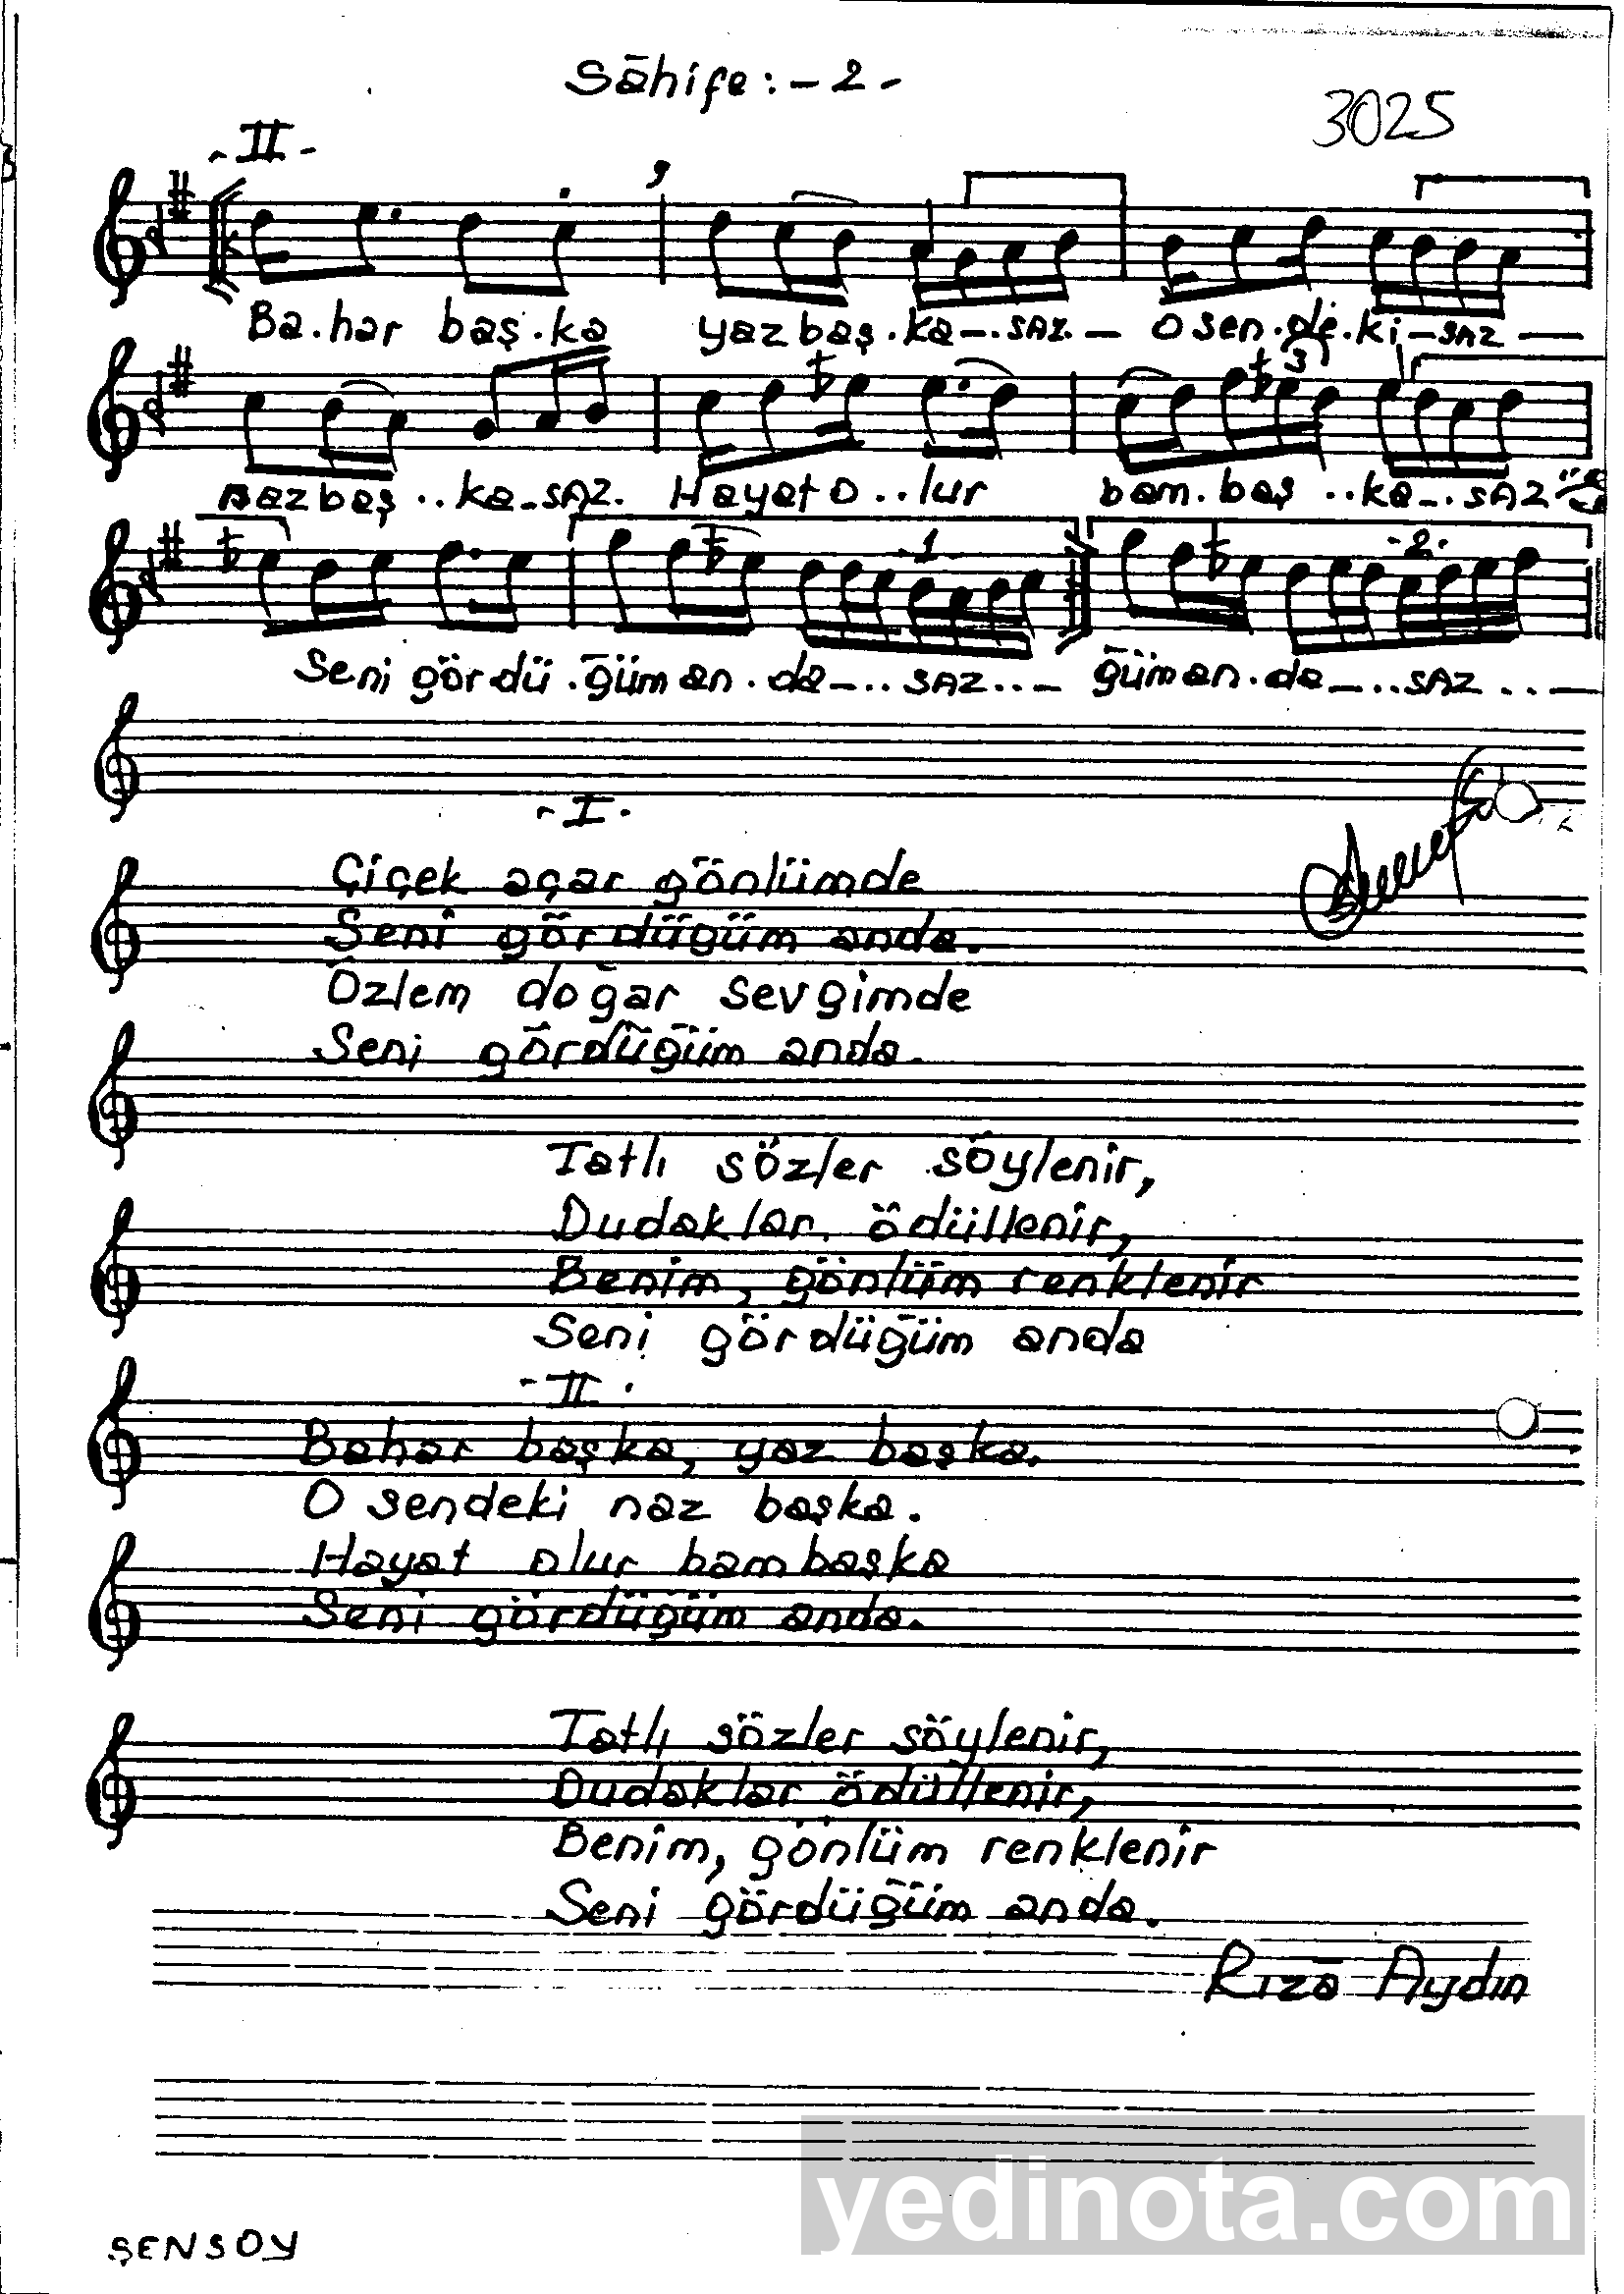 Sāhife: -2-
3025
-II-
Ba.har baş.ka yaz baş.ka-.SAZ.- O sen.de.ki-SAZ-
3
naz baş..ka-SAZ. Hayat o..lur bam.baş..ka-.SAZ
-1- -2-
Seni gördü.ğüm an.da-..SAZ..- ğüm an.da-..SAZ..-
-I-
Çiçek açar gönlümde
Seni gördüğüm anda.
Özlem doğar sevgimde
Seni gördüğüm anda.
Tatlı sözler söylenir,
Dudaklar ödüllenir,
Benim, gönlüm renklenir
Seni gördüğüm anda
-II-
Bahar başka, yaz başka.
O sendeki naz başka.
Hayat olur bambaşka
Seni gördüğüm anda.
Tatlı sözler söylenir,
Dudaklar ödüllenir,
Benim, gönlüm renklenir
Seni gördüğüm anda.
Rıza Aydın
yedinota.com
ŞENSOY